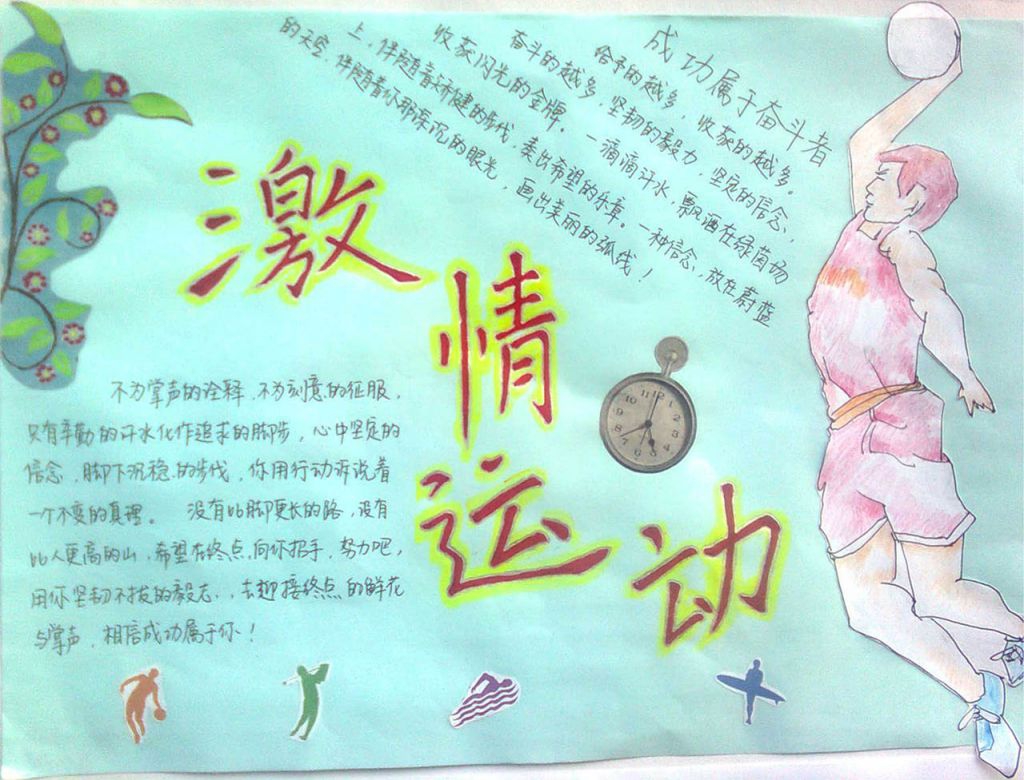 成功属于奋斗者
给予的越多，收获的越多。
奋斗的越多，坚韧的毅力，坚定的信念，
收获闪光的金牌。一滴滴汗水，飘洒在绿茵场
上，伴随着矫健的步伐，奏出希望的乐章。一种信念，放在蔚蓝
的天空，伴随着你那深沉的眼光，画出美丽的弧线！
激情
运动
12
1
2
3
4
5
7
8
9
10
11
不为掌声的诠释，不为刻意的征服，
只有辛勤的汗水化作追求的脚步，心中坚定的
信念，脚下沉稳的步伐，你用行动诉说着
一个不变的真理。没有比脚更长的路，没有
比人更高的山，希望在终点向你招手，努力吧，
用你坚韧不拔的毅志，去迎接终点的鲜花
与掌声，相信成功属于你！